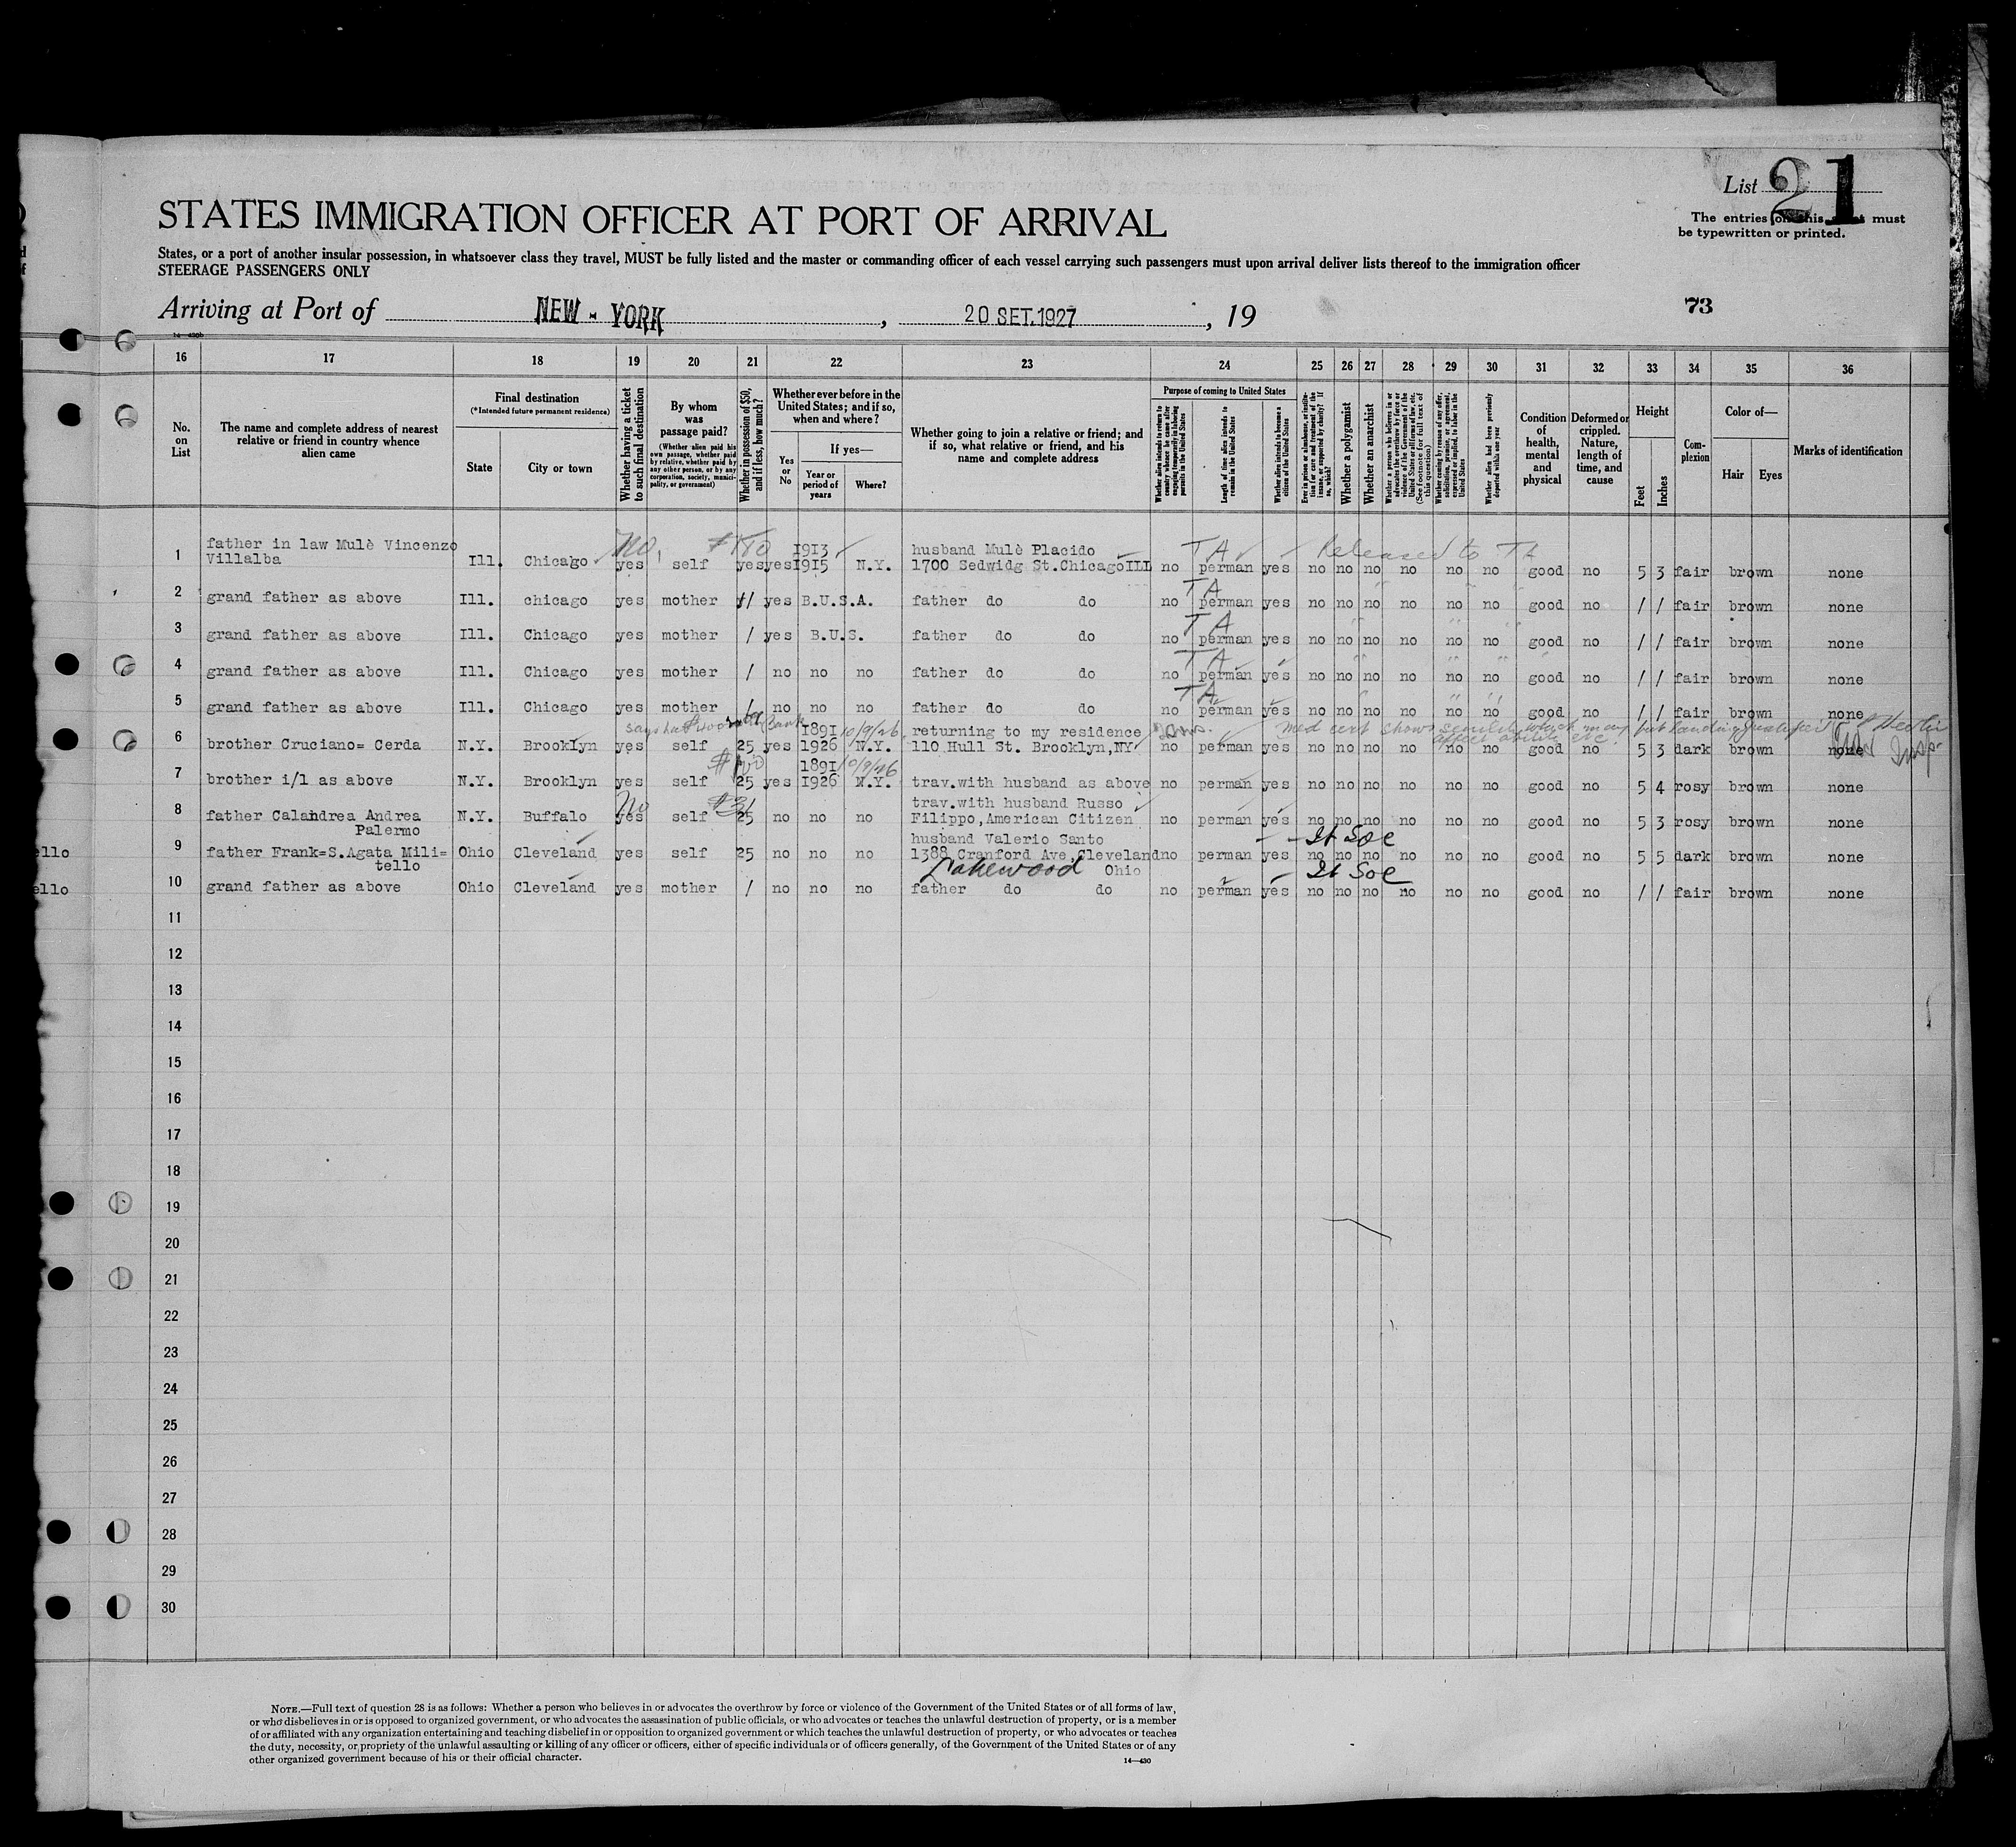 List 21
STATES IMMIGRATION OFFICER AT PORT OF ARRIVAL
The entries on this must
be typewritten or printed.
States, or a port of another insular possession, in whatsoever class they travel, MUST be fully listed and the master or commanding officer of each vessel carrying such passengers must upon arrival deliver lists thereof to the immigration officer
STEERAGE PASSENGERS ONLY
Arriving at Port of NEW-YORK, 20 SET.1927, 19
73
16 17 18 19 20 21 22 23 24 25 26 27 28 29 30 31 32 33 34 35 36
No. on List
The name and complete address of nearest relative or friend in country whence alien came
Final destination
(*Intended future permanent residence)
State
City or town
Whether having a ticket to such final destination
By whom was passage paid?
(Whether alien paid his own passage, whether paid by relative, whether paid by any other person, or by any corporation, society, municipality, or government)
Whether in possession of $50, and if less, how much?
Whether ever before in the United States; and if so, when and where?
Yes or No
If yes—
Year or period of years
Where?
Whether going to join a relative or friend; and if so, what relative or friend, and his name and complete address
Purpose of coming to United States
Whether alien intends to return to country whence he came after engaging temporarily in laboring pursuits in the United States
Length of time alien intends to remain in the United States
Whether alien intends to become a citizen of the United States
Ever in prison or almshouse, or institution for care and treatment of the insane, or supported by charity? If so, which?
Whether a polygamist
Whether an anarchist
Whether a person who believes in or advocates the overthrow by force or violence of the Government of the United States or all forms of law, etc. (See footnote for full text of this question)
Whether coming by reason of any offer, solicitation, promise, or agreement, expressed or implied, to labor in the United States
Whether alien had been previously deported within one year
Condition of health, mental and physical
Deformed or crippled. Nature, length of time, and cause
Height
Feet
Inches
Complexion
Color of—
Hair
Eyes
Marks of identification
father in law Mulè Vincenzo No, 1913 husband Mulè Placido TA Released to TA
1 Villalba Ill. Chicago yes self yes yes 1915 N.Y. 1700 Sedwidg St.Chicago ILL no perman yes no no no no no no good no 5 3 fair brown none
TA
2 grand father as above Ill. chicago yes mother / yes B.U.S.A. father do do no perman yes no no no no no no good no / / fair brown none
TA
3 grand father as above Ill. Chicago yes mother / yes B.U.S. father do do no perman yes no no no no no no good no / / fair brown none
TA
4 grand father as above Ill. Chicago yes mother / no no no father do do no perman yes no no no no no no good no / / fair brown none
TA
5 grand father as above Ill. Chicago yes mother / no no no father do do no perman yes no no no no no no good no / / fair brown none
1891 10/9/26 returning to my residence
6 brother Cruciano= Cerda N.Y. Brooklyn yes self 25 yes 1926 N.Y. 110 Hull St. Brooklyn,NY no perman yes no no no no no no good no 5 3 dark brown none
1891 10/9/26
7 brother i/l as above N.Y. Brooklyn yes self 25 yes 1926 N.Y. trav.with husband as above no perman yes no no no no no no good no 5 4 rosy brown none
No $31 trav.with husband Russo
8 father Calandrea Andrea N.Y. Buffalo yes self 25 no no no Filippo,American Citizen no perman yes no no no no no no good no 5 3 rosy brown none
Palermo husband Valerio Santo It Soc
9 ello father Frank=S.Agata Mili= Ohio Cleveland yes self 25 no no no 1388 Cranford Ave.Cleveland no perman yes no no no no no no good no 5 5 dark brown none
tello Lakewood Ohio It Soc
10 ello grand father as above Ohio Cleveland yes mother / no no no father do do no perman yes no no no no no no good no / / fair brown none
11
12
13
14
15
16
17
18
19
20
21
22
23
24
25
26
27
28
29
30
NOTE.—Full text of question 28 is as follows: Whether a person who believes in or advocates the overthrow by force or violence of the Government of the United States or of all forms of law,
or who disbelieves in or is opposed to organized government, or who advocates the assassination of public officials, or who advocates or teaches the unlawful destruction of property, or is a member
of or affiliated with any organization entertaining and teaching disbelief in or opposition to organized government or which teaches the unlawful destruction of property, or who advocates or teaches
the duty, necessity, or propriety of the unlawful assaulting or killing of any officer or officers, either of specific individuals or of officers generally, of the Government of the United States or of any
other organized government because of his or their official character.
14—430